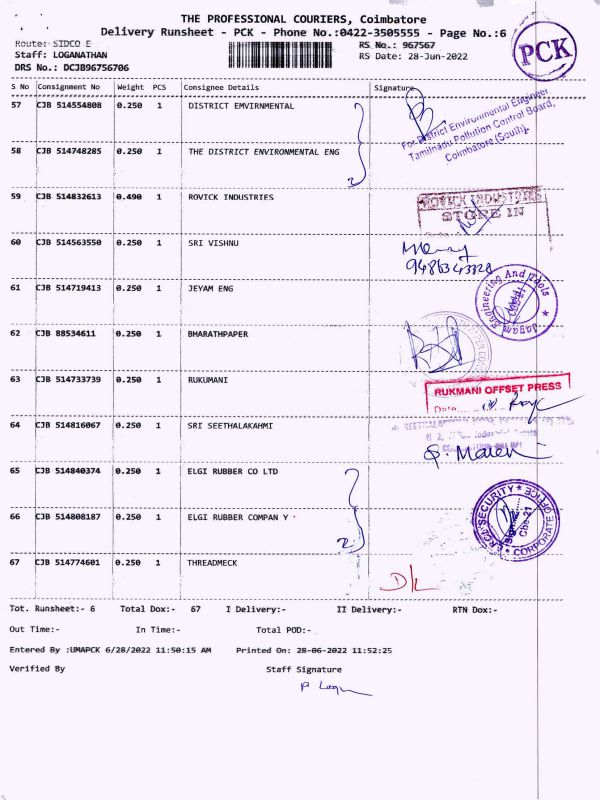 THE PROFESSIONAL COURIERS, Coimbatore
Delivery Runsheet - PCK - Phone No.:0422-3505555 - Page No.:6
Route: SIDCO E
RS No.: 967567
Staff: LOGANATHAN
RS Date: 28-Jun-2022
DRS No.: DCJB96756706
PCK
S No Consignment No Weight PCS Consignee Details Signature
57 CJB 514554808 0.250 1 DISTRICT EMVIRNMENTAL
For District Environmental Engineer,
Tamilnadu Pollution Control Board,
Coimbatore (South).
58 CJB 514748285 0.250 1 THE DISTRICT ENVIRONMENTAL ENG
2
59 CJB 514832613 0.490 1 ROVICK INDUSTRIES
ROVICK INDUSTRIES
STORE IN
60 CJB 514563550 0.250 1 SRI VISHNU
61 CJB 514719413 0.250 1 JEYAM ENG
Engineering And Tools
62 CJB 88534611 0.250 1 BHARATHPAPER
63 CJB 514733739 0.250 1 RUKUMANI
RUKMANI OFFSET PRESS
Date
64 CJB 514816067 0.250 1 SRI SEETHALAKAHMI
65 CJB 514840374 0.250 1 ELGI RUBBER CO LTD
SECURITY
CORPORATE OFFICE
Cbe-21
66 CJB 514808187 0.250 1 ELGI RUBBER COMPAN Y
2
67 CJB 514774601 0.250 1 THREADMECK
D/L
Tot. Runsheet:- 6 Total Dox:- 67 I Delivery:- II Delivery:- RTN Dox:-
Out Time:- In Time:- Total POD:-
Entered By :UMAPCK 6/28/2022 11:50:15 AM Printed On: 28-06-2022 11:52:25
Verified By Staff Signature